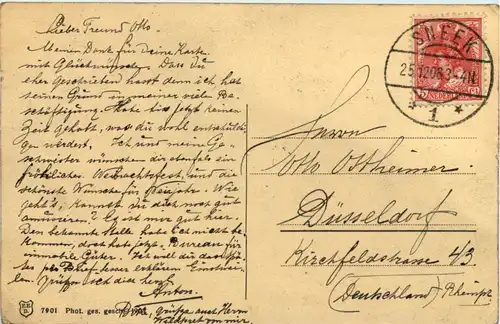 Lieber Freund Otto.
Meinen Dank für Deine Karte
mit Glückwünsche. Dass Du
eher Geschrieben hasst denn ich hat
seinen Grund in meiner viel Be-
schäftigung. Habe bis jetzt keinen
Zeit gehabt, was du wohl entschuldi-
gen würdest. Ich und meine Ge-
schwister wünschen dir ebenfals ein
fröhliches Weihnachtsfest, und die
schönste Wünsche für Neujahr. Wie
geht's, kannst du dich noch gut
amusiren? Es ist mir gut hier.
Den bekannte Stelle habe ich nicht be-
kommen, doch habe jetzt Bureau für
immobile Güter. Ich will dir das
per Brief besser erklären. Einstwei-
len, grüsse dich herzl.
Anton.
SNEEK
25.12.06.3-4N.
* 1 *
Herrn
Otto Ottheimer
Düsseldorf
Kirchfeldstrasse 43.
(Deutschland) Rheinpr.
7901 Phot. ges. gesch.
Grüsse auch Herrn
von mir.